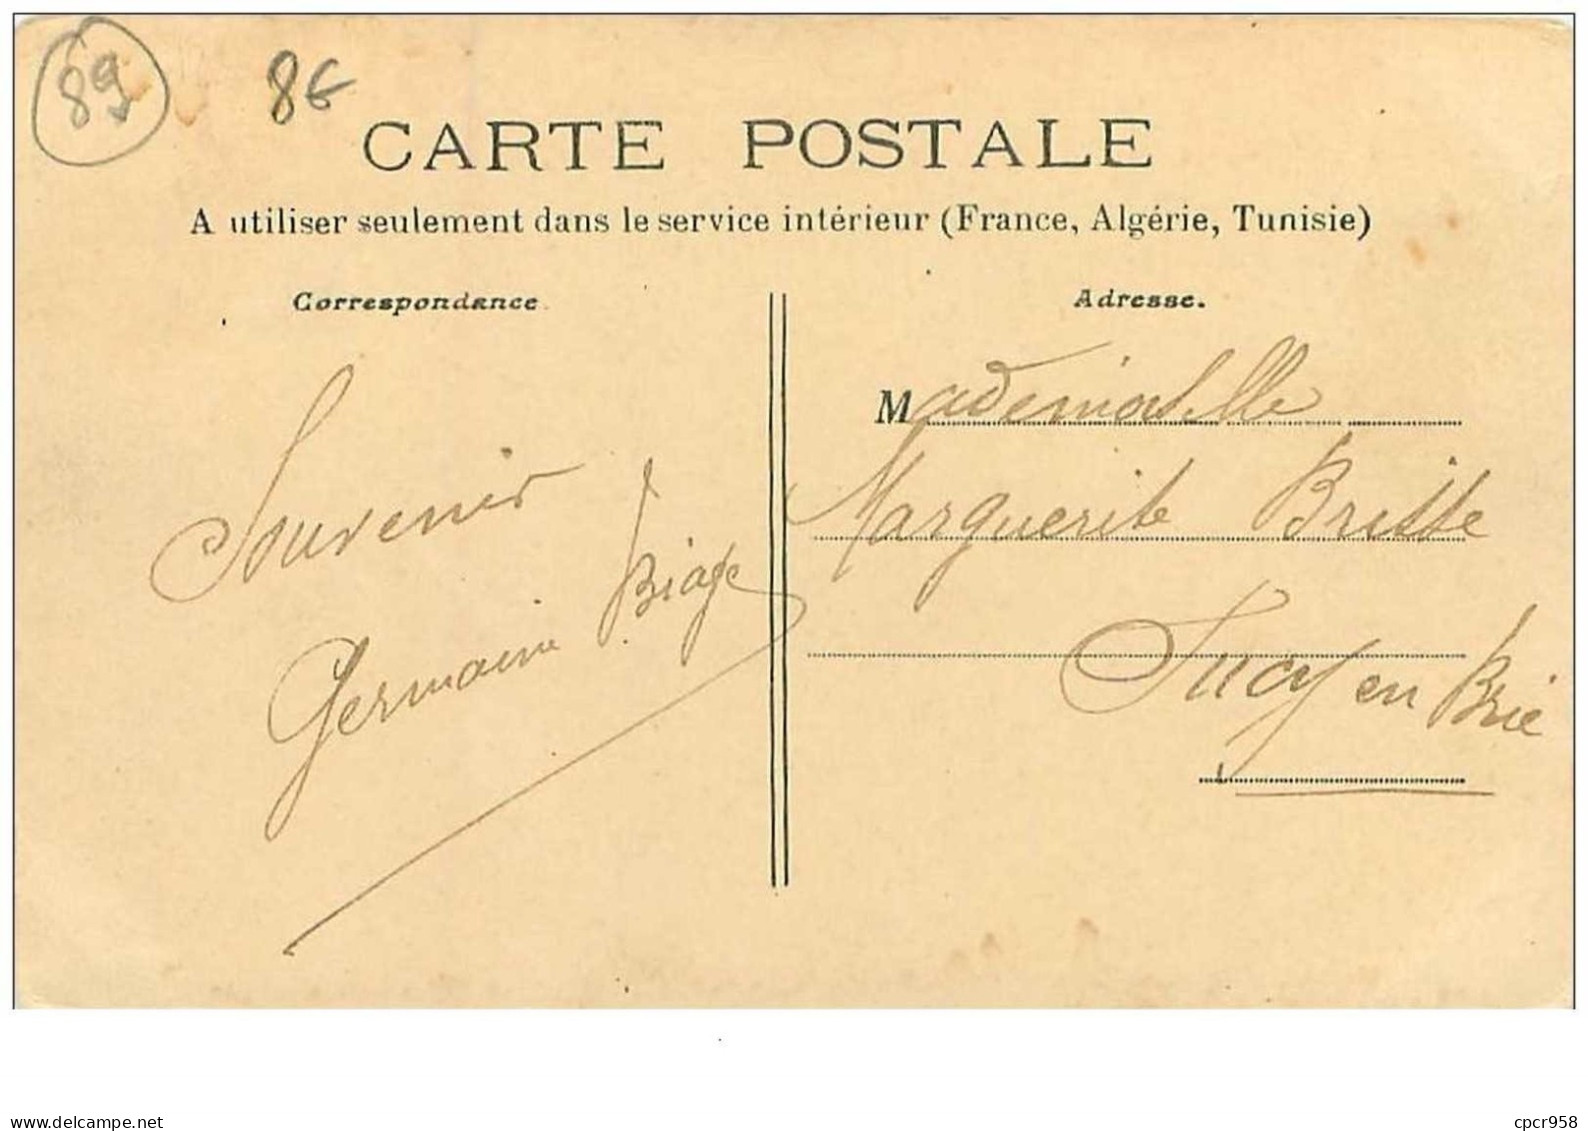 89
8€
CARTE POSTALE
A utiliser seulement dans le service intérieur (France, Algérie, Tunisie)
Correspondance
Souvenir
Germaine
Adresse.
Mademoiselle
Marguerite
Sucy en Brie
www.delcampe.net
cpcr958